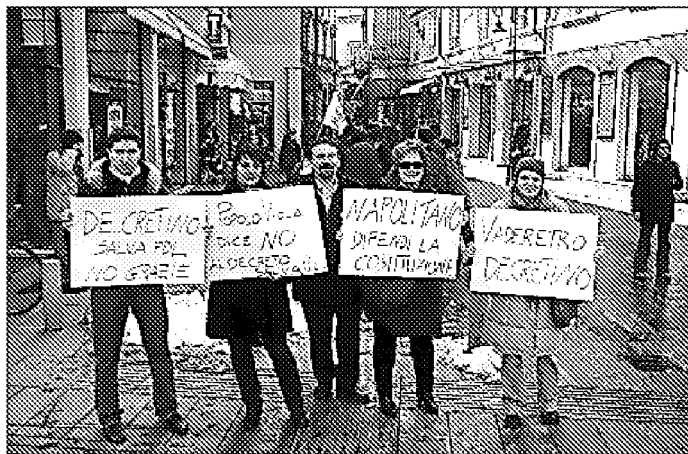 DECRETINO
SALVA PDL
NO GRAZIE
POPOLO VIOLA
DICE NO
AL DECRETO
NAPOLITANO
DIFENDI LA
COSTITUZIONE
VADERETRO
DECRETINO